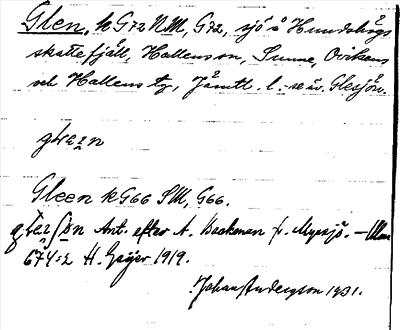 Glen, k G72 NM, G72, sjö å Hundshögs
skattefjäll, Hallens sn, Sunne, Ovikens
och Hallens tg, Jämtl. l. - se äv. Glesjön.
Gleen k G66 SM, G66.
Ant. efter A. Backman fr. Myssjö. —
674:2 H. Geijer 1919.
Johan Andersson 1931.